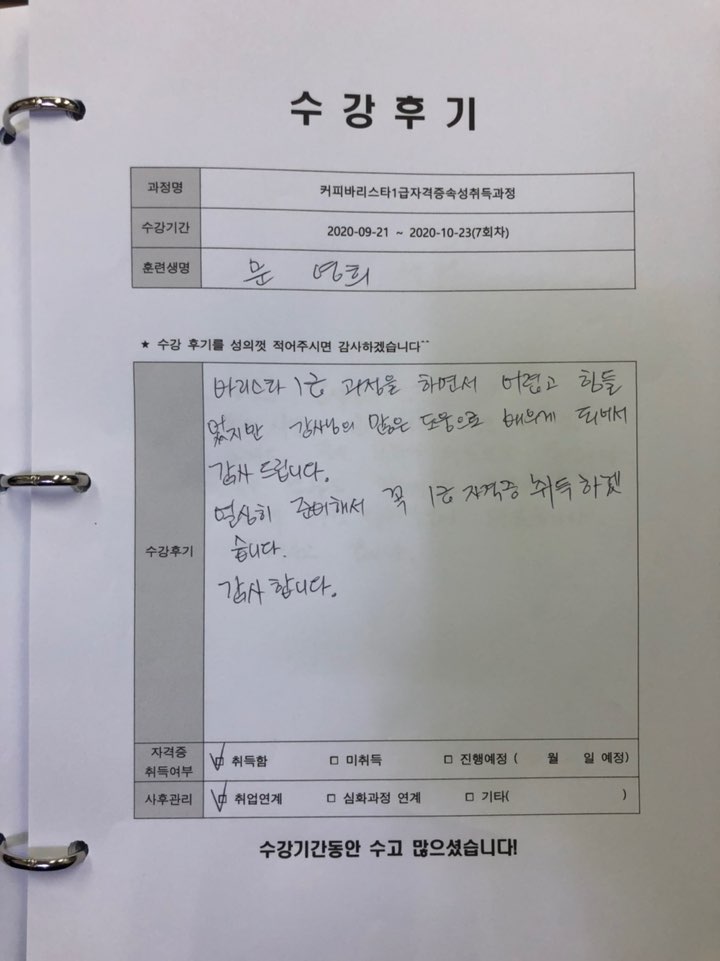 수 강 후 기
과정명 커피바리스타1급자격증속성취득과정
수강기간 2020-09-21 ~ 2020-10-23(7회차)
훈련생명 문 영희
★ 수강 후기를 성의껏 적어주시면 감사하겠습니다^^
수강후기
바리스타 1급 과정을 하면서 어렵고 힘들
었지만 강사님의 많은 도움으로 배우게 되어서
감사 드립니다.
열심히 준비해서 꼭 1급 자격증 취득하겠
습니다.
감사 합니다.
자격증
취득여부 ☑ 취득함 □ 미취득 □ 진행예정 ( 월 일 예정)
사후관리 ☑ 취업연계 □ 심화과정 연계 □ 기타( )
수강기간동안 수고 많으셨습니다!